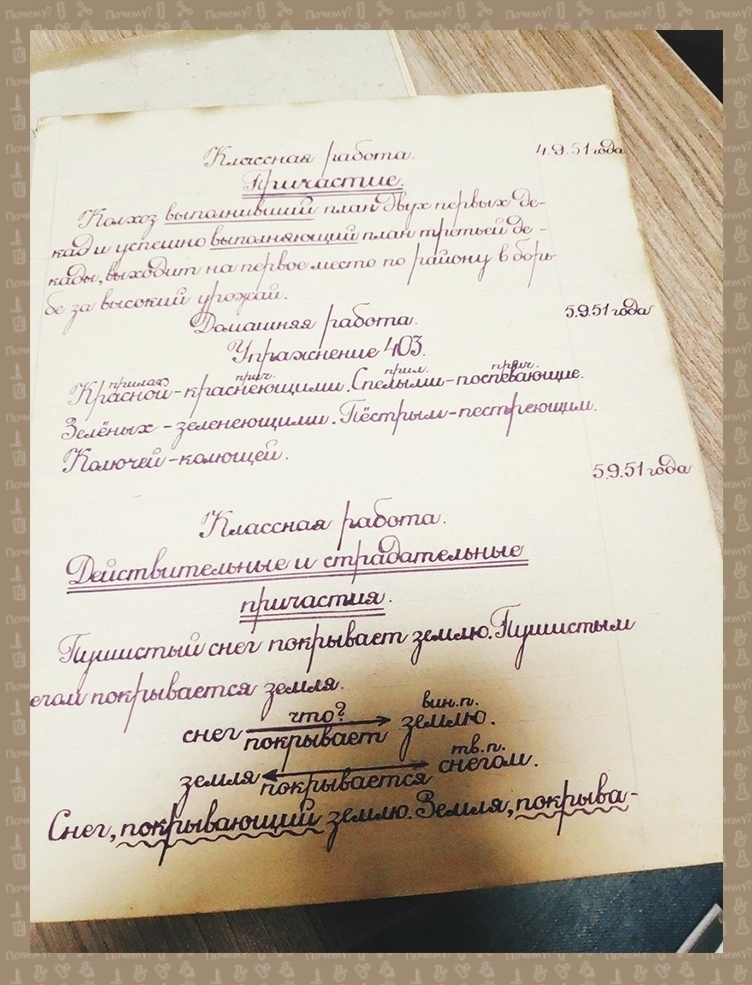 4.9.51 года
Классная работа.
Причастие.
Колхоз выполнивший план двух первых де-
кад и успешно выполняющий план третьей де-
кады, выходит на первое место по району в борь-
бе за высокий урожай.
5.9.51 года
Домашняя работа.
Упражнение 403.
прилаг. прич. прил. прич.
Красной-краснеющими. Спелыми-поспевающие.
Зелёных - зеленеющими. Пёстрым-пестреющим.
Колючей-колющей.
5.9.51 года
Классная работа.
Действительные и страдательные
причастия.
Пушистый снег покрывает землю. Пушистым
егом покрывается земля.
что? вин.п.
снег покрывает землю.
тв.п.
земля покрывается снегом.
Снег, покрывающий землю. Земля, покрыва-